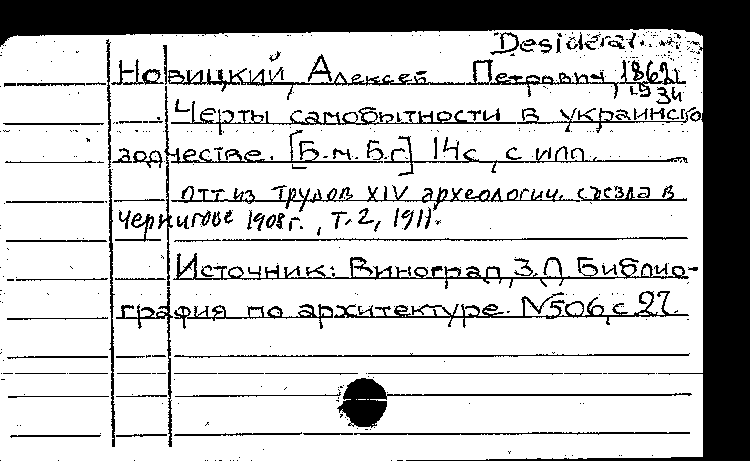 Desiderat.
Новицкий, Алексей Петрович, 1862-
1934
Черты самобытности в украинско
зодчестве. [Б.м. Б.г.] 14с., с илл.
отт. из Трудов XIV археологич. съезда в
Чернигове 1908г., Т. 2, 1911.
Источник: Виноград, З.Д. Библио-
графия по архитектуре. N506, с 27.